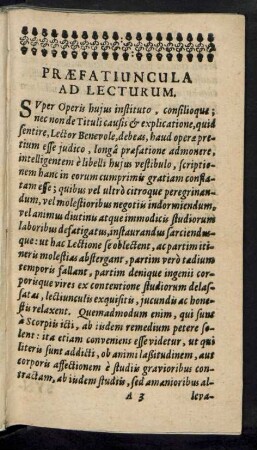 PRÆFATIUNCULA
AD LECTURUM.
SVper Operis hujus instituto, consilioque;
nec non de Tituli causis & explicatione, quid
sentire, Lector Benevole, debeas, haud operæ pre-
tium esse judico, longâ præfatione admonere,
intelligentem è libelli hujus vestibulo, scriptio-
nem hanc in eorum cumprimis gratiam confla-
tam esse; quibus vel ultrò citroque peregrinan-
dum, vel molestioribus negotiis indormiendum,
vel animus diutinu atque immodicis studiorum
laboribus defatigatus, instaurandus sarciendus-
que: ut hac Lectione se oblectent, ac partim iti-
neris molestias abstergant, partim verò tædium
temporis fallant, partim denique ingenii cor-
porisque vires ex contentione studiorum delas-
satas, lectiunculis exquisitis, jucundis ac hone-
stis relaxent. Quemadmodum enim, qui sunt
à Scorpiis icti, ab iisdem remedium petere so-
lent: ita etiam conveniens esse videtur, ut qui
literis sunt addicti, ob animi lassitudinem, aut
corporis affectionem è studiis gravioribus con-
tractam, ab iisdem studiis, sed amanioribus al-
A 3 leva-